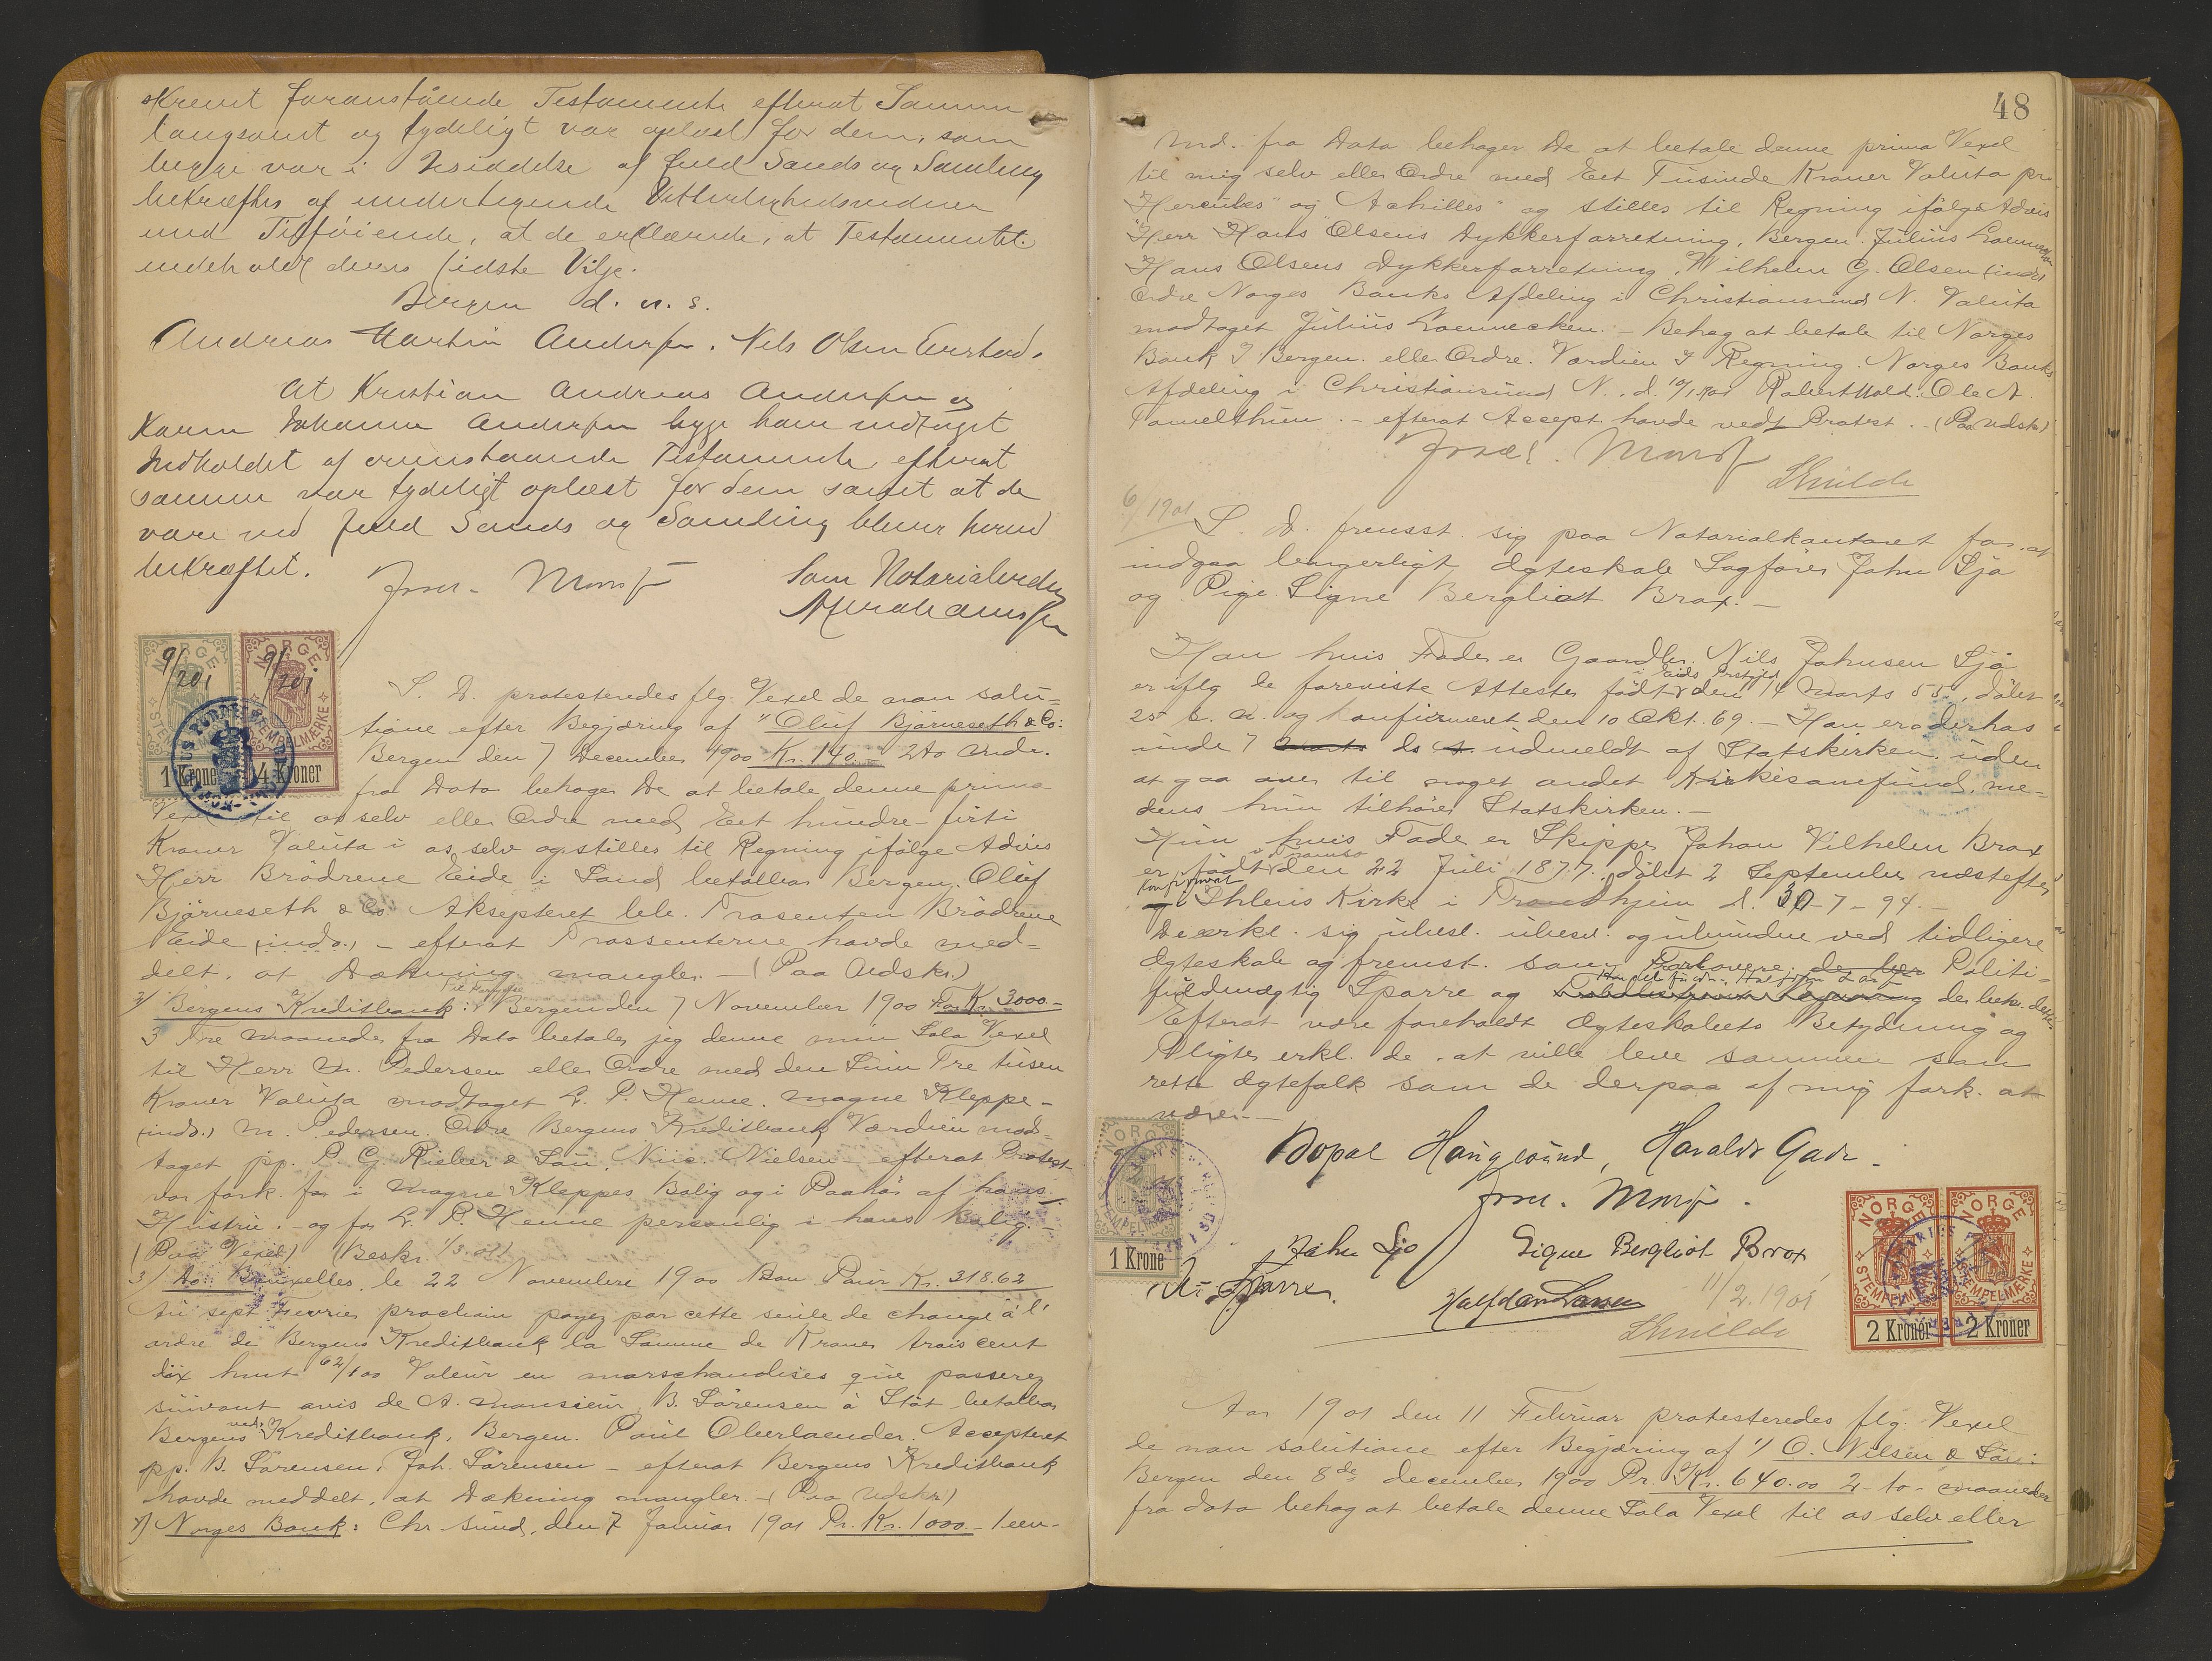 skrevet foranstående Testamente efterat Samme
langsomt og tydeligt var oplæst for dem, som
begge var i Besiddelse af fuld Sands og Samling
bekræftes af undertegnede Vitterlighedsvidner
med Tilføiende, at de erklærede, at Testamentet
indeholdt deres sidste Vilje.
Bergen d. u. s.
Andreas Martin Andersen. Nils Olsen
At Kristian Andreas Andersen og
Karen Johanne Andersen begge have vedtaget
Indholdet af ovenstaaende Testamente efterat
samme var tydeligt oplæst for dem samt at de
vare ved fuld Sands og Samling bliver herved
bekræftet.
Som Notarialvidne
Abrahamsen
9/2 01 9/2 01
NORGE NORGE
STEMPELMÆRKE STEMPELMÆRKE
1 Krone 4 Kroner
S. D. protesteredes flg. Vexel de non solu-
tione efter Begjæring af "Oluf Bjørneseth & Co:
Bergen den 7 December 1900 Kr. 140.- 2 to Mdr.
fra Dato behager De at betale denne prima
Vexel til os selv eller Ordre med Eet hundre firti
Kroner Valuta i os selv og stilles til Regning ifølge Advis
Herr Brödrene Eide i Sand betalbar Bergen. Oluf
Bjørneseth & Co. Aksepteret Brödrene
Eide (indo.) - efterat Trassenterne havde med-
delt, at Dækning mangler. - (Paa Udskr.)
2/ Bergens Kreditbank: Bergen den 7 November 1900 For Kr. 3000.-
3 Tre maaneder fra Dato betaler jeg denne min Sola Vexel
til Herr M. Pedersen eller Ordre med den Sum Tre tusen
Kroner Valuta modtaget L. P. Henne. Magne Kleppe -
(indo.) M. Pedersen. Ordre Bergens Kreditbank Værdien mod-
taget pp. P. G. Rieber & Søn, Nielsen - efterat Protest
var fork. for i Magne Kleppes Bolig og i Paahør af hans
Hustru. - og for L. P. Henne personlig i hans Bolig. -
(Paa Vexel) (Beskr. 1/3 01)
3/ do: Bruxelles, le 22 Novembre 1900 Bon Pour Kr. 318.62
Au sept Fevrier prochain payez par cette seule de change à l'
ordre de Bergens Kreditbank la Somme de Kroner trois cent
dix huit 62/100 Valeur en marschandises que passerez
suivant avis de A. Monsieur B. Sörensen à Stöt betalbar
ved
Bergens Kreditbank, Bergen. Paul Oberlaender. Accepteret
pp. B. Sörensen, Joh. Sörensen - efterat Bergens Kreditbank
havde meddelt, at Dækning mangler. - (Paa Udskr)
4) Norges Bank: Chr. sund, den 7 Januar 1901 Pr. Kr. 1000.- 1 een-
48
Md. fra Dato behager De at betale denne prima Vexel
til mig selv eller Ordre med Eet Tusinde Kroner Valuta pr.
"Hercules" og "Achilles" og stilles til Regning ifølge Advis
Herr Hans Olsens Dykkerforretning, Bergen. Julius Loennecken
Hans Olsens Dykkerforretning, Wilhelm G. Olsen (indo)
Ordre Norges Banks Afdeling i Christiansund N. Valuta
modtaget Julius Loennecken. - Behag at betale til Norges
Bank I Bergen. eller Ordre. Værdien I Regning. Norges Banks
Afdeling i Christiansund N. d. 10/1 1901 Robert Ole A.
- efterat Accept. havde vedt. Protest. - (Paa Udskr)
6/ 1901
S. D. fremst. sig paa Notarialkontoret for at
indgaa borgerligt Ægteskab Sagfører John Sjö
og Pige Signe Bergliot Brox. -
Han hvis Fader er Gaardbr. Nils Johnsen Sjö
i Eids Prstgjld
er iflg de foreviste Attester født den 14 Marts 55, døbt
25 s. M. og konfirmeret den 10 Okt. 69. - Han er derhos
under 7 ds udmeldt af Statskirken uden
at gaa over til noget andet Kirkesamfund, me-
dens hun tilhører Statskirken. -
Hun hvis Fader er Skipper Johan Vilhelm Brox
i Tromsø
er født den 22 Juli 1877. døbt 2 September næstefter
konfirmeret
i Ihlens Kirke i Trondhjem d. 30-7-94. -
De erkl. sig ubesl. ubesv. og ubundne ved tidligere
Ægteskab og fremst. som Forlovere Politi-
fuldmægtig Sparre og der bekr. dette
Efterat være foreholdt Ægteskabets Betydning og
Pligter erkl. de at ville leve sammen som
rette Ægtefolk som de derpaa af mig fork. at
være. -
Bopæl Haugesund, Haralds Gade.
NORGE
STEMPELMÆRKE
1 Krone
John Sjø Signe Bergliot Brox
Sparre
Halfdan Larsen
11/2. 1901
NORGE NORGE
STEMPELMÆRKE STEMPELMÆRKE
2 Kroner 2 Kroner
Aar 1901 den 11 Februar protesteredes flg. Vexel
de non solutione efter Begjæring af 1/ O. Nilsen & Søn:
Bergen den 8de December 1900 Pr. Kr. 640.00 2 - to - maaneder
fra dato behag at betale denne Sola Vexel til os selv eller